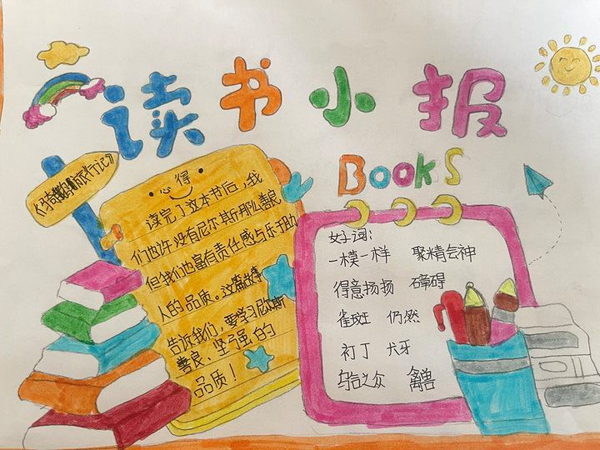 读书小报
BOOKS
《骑鹅旅行记》
心得
读完了这本书后,我
们也许没有尼尔斯那么善良
但我们也富有责任感与乐于助
人的品质。这篇故事
告诉我们,要学习尼尔斯
善良、坚强的
品质!
好词:
一模一样 聚精会神
得意扬扬 障碍
雀斑 仍然
补丁 犬牙
乌合之众 禽兽